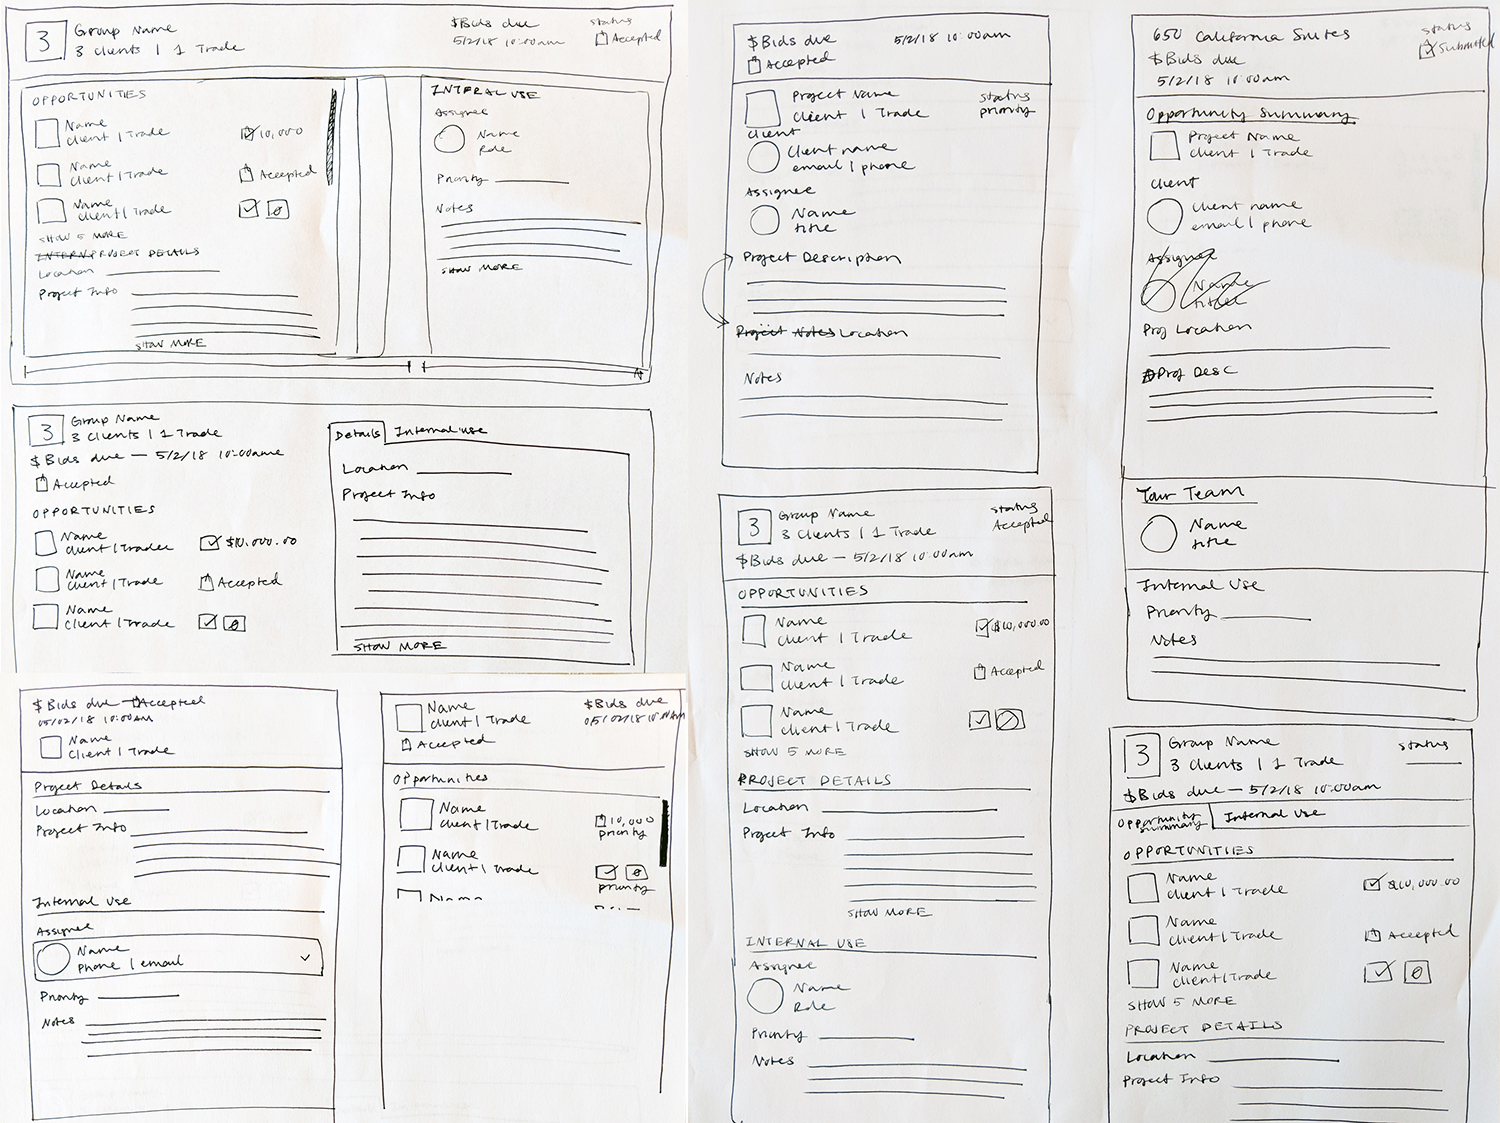 3
Group Name
3 clients | 1 Trade
$Bids due
5/2/18 10:00am
status
Accepted
OPPORTUNITIES
Name
Client | Trade
10,000
Name
Client | Trade
Accepted
Name
Client | Trade
SHOW 5 MORE
INTERN PROJECT DETAILS
Location
Project Info
SHOW MORE
INTERAL USE
Assignee
Name
Role
Priority
Notes
SHOW MORE
3
Group Name
3 Clients | 1 Trade
$Bids due — 5/2/18 10:00am
Accepted
OPPORTUNITIES
Name
Client | Trade
$10,000.00
Name
Client | Trade
Accepted
Name
Client | Trade
Details
Internal use
Location
Project Info
SHOW MORE
$Bids due — Accepted
05/02/18 10:00AM
Name
Client | Trade
Project Details
Location
Project Info
Internal Use
Assignee
Name
Phone | email
Priority
Notes
Name
Client | Trade
Accepted
$Bids due
05/02/18 10:00AM
Opportunities
Name
Client | Trade
10,000
priority
Name
Client | Trade
priority
Name
$Bids due
5/2/18 10:00am
Accepted
Project Name
Client | Trade
status
priority
Client
Client name
email | phone
Assignee
Name
title
Project Description
Project Notes Location
Notes
3
Group Name
3 Clients | 1 Trade
status
Accepted
$Bids due — 5/2/18 10:00am
OPPORTUNITIES
Name
Client | Trade
$10,000.00
Name
Client | Trade
Accepted
Name
Client | Trade
SHOW 5 MORE
PROJECT DETAILS
Location
Project Info
SHOW MORE
INTERNAL USE
Assignee
Name
Role
Priority
Notes
650 California Suites
$Bids due
5/2/18 10:00am
status
Submitted
Opportunity Summary
Project Name
Client | Trade
Client
Client name
email | phone
Assignee
Name
title
Proj Location
Proj Desc
Your Team
Name
title
Internal Use
Priority
Notes
3
Group Name
3 Clients | 1 Trade
status
$Bids due — 5/2/18 10:00am
Opportunity
Summary
Internal Use
OPPORTUNITIES
Name
Client | Trade
$10,000.00
Name
Client | Trade
Accepted
Name
Client | Trade
SHOW 5 MORE
PROJECT DETAILS
Location
Project Info